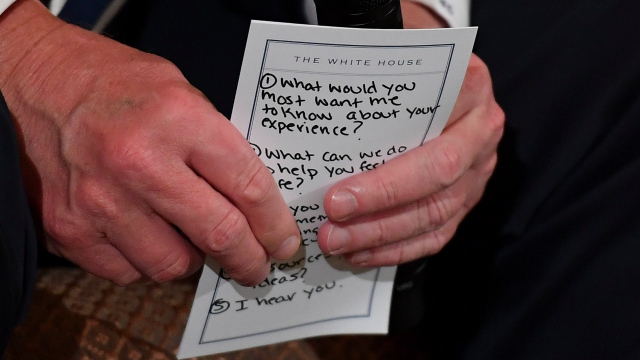 THE WHITE HOUSE
① What would you
most want me
to know about your
experience?
What can we do
help you feel
you
⑤ I hear you.